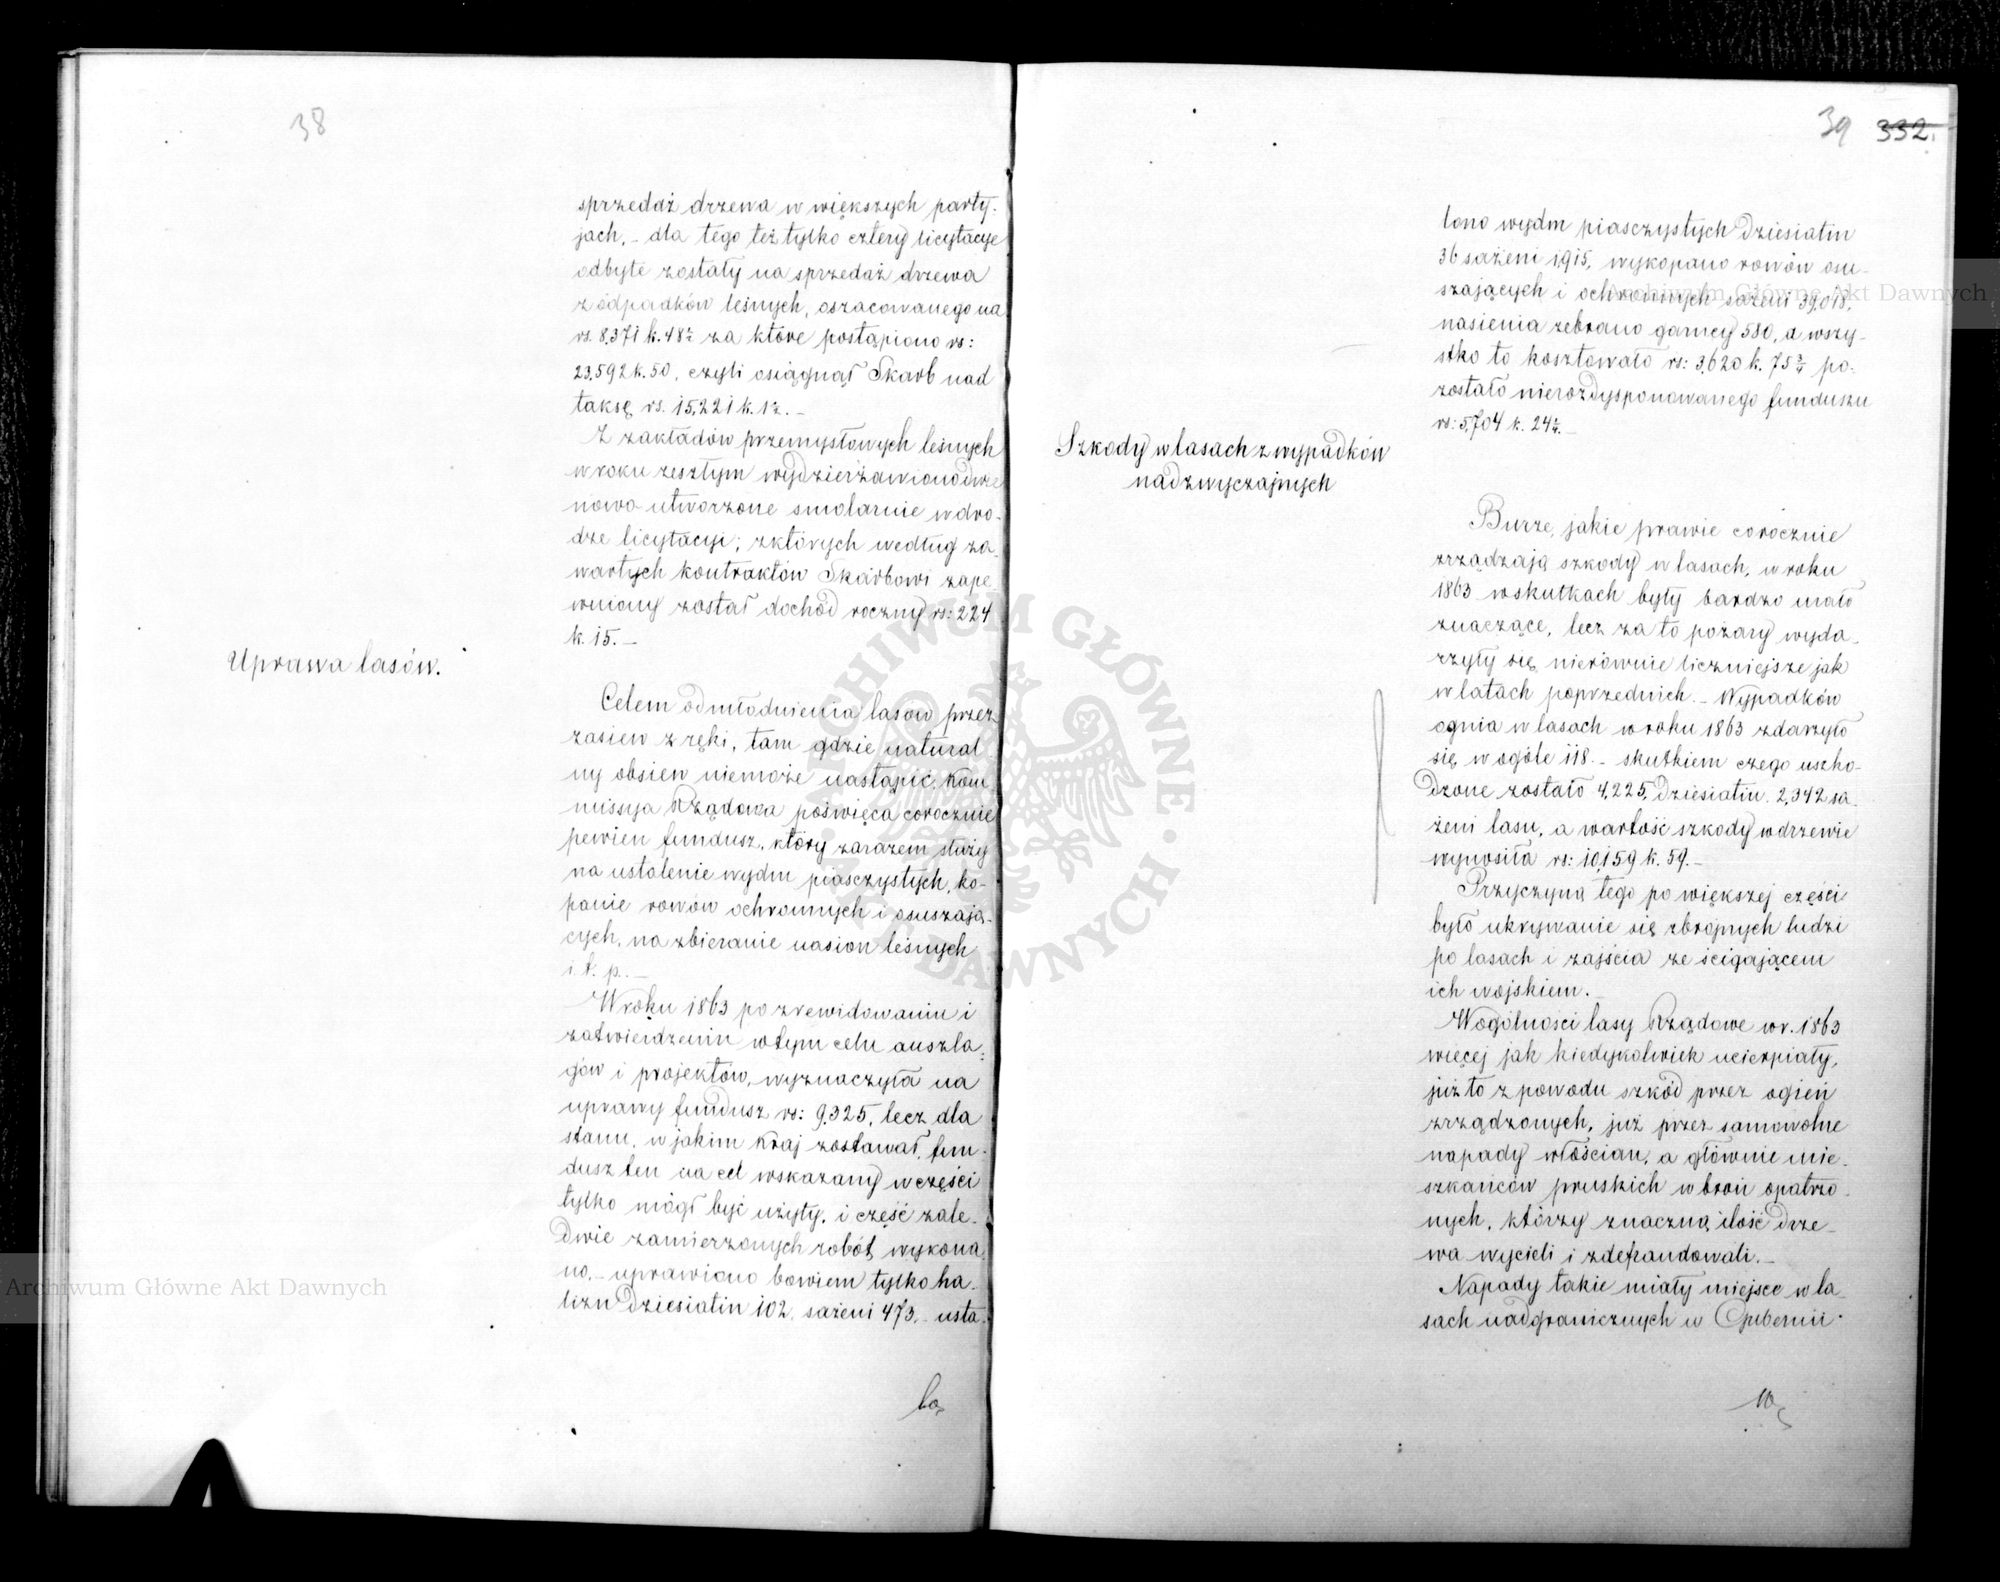 38
sprzedaż drzewa w większych party-
jach, - dla tego też tylko cztery licytacye
odbyte zostały na sprzedaż drzewa
z odpadków leśnych, oszacowanego na
rs. 8,371 k. 48½ za które postąpiono rs:
23,592 k. 50, czyli osiągnął Skarb nad
taksę rs. 15,221 k. 1½. -
Z zakładów przemysłowych leśnych
w roku zeszłym wydzierżawiono dwie
nowo utworzone smolarnie w dro-
dze licytacyi; z których według za-
wartych kontraktów Skarbowi zape-
wniony został dochód roczny rs: 224
k. 15. -
Uprawa lasów.
Celem odmłodnienia lasów przez
zasiew z ręki, tam gdzie natural-
ny obsiew niemoże nastąpić, Kom-
missya Rządowa poświęca corocznie
pewien fundusz, który zarazem służy
na ustalenie wydm piasczystych, ko-
panie rowów ochronnych i osuszają-
cych, na zbieranie nasion leśnych
i t. p. -
W roku 1863 po zrewidowaniu i
zatwierdzeniu w tym celu auszla-
gów i projektów, wyznaczyła na
uprawy fundusz rs: 9,325, lecz dla
stanu, w jakim Kraj zostawał, fun-
dusz ten na cel wskazany w części
tylko mógł być użyty, i część zale-
dwie zamierzonych robót wykona-
no, - uprawiono bowiem tylko ha-
lizn Dziesiatin 102, sażeni 473, - usta-
39 332.
lono wydm piasczystych Dziesiatin
36 sażeni 1,915, wykopano rowów osu-
szających i ochronnych sażeni 39,018,
nasienia zebrano garncy 580, a wszy-
stko to kosztowało rs: 3,620 k. 75¾ po-
zostało nierozdysponowanego funduszu
rs: 5,704 k. 24¼. -
Szkody w lasach z wypadków
nadzwyczajnych
Burze, jakie prawie corocznie
zrządzają szkody w lasach, w roku
1863 w skutkach były bardzo mało
znaczące, lecz za to pożary wyda-
rzyły się nierównie liczniejsze jak
w latach poprzednich. - Wypadków
ognia w lasach w roku 1863 zdarzyło
się w ogóle 118. - skutkiem czego uszko-
dzone zostało 4,225, Dziesiatin. 2,342 sa-
żeni lasu, a wartość szkody w drzewie
wynosiła rs: 10,159 k. 59. -
Przyczyną tego po większej części
było ukrywanie się zbrojnych ludzi
po lasach i zajścia ze ścigającem
ich wojskiem. -
W ogólności lasy Rządowe w r. 1863
więcej jak kiedykolwiek ucierpiały,
już to z powodu szkód przez ogień
zrządzonych, już przez samowolne
napady włościan, a głównie mie-
szkańców pruskich w broń opatrzo-
nych, którzy znaczną ilość drze-
wa wycieli i zdefraudowali. -
Napady takie miały miejsce w la-
sach nadgranicznych w Gubernii
Archiwum Główne Akt Dawnych
Archiwum Główne Akt Dawnych
ARCHIWUM GŁÓWNE AKT DAWNYCH